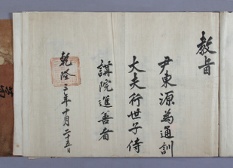 教旨
尹東源爲通訓
大夫行世子侍
講院進善者
乾隆三年十月二十五日